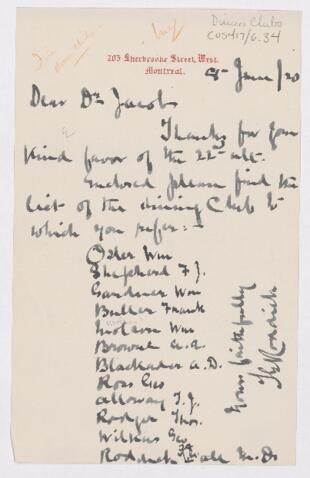 Dinner Clubs
CUS417/6.34
203 Sherbrooke Street, West.
Montreal.
June/20
Dear Dr Jacobs
Thanks for your
kind favor of the 22nd ult.
Enclosed please find the
list of the dining Club to
which you refer:-
Osler Wm
Shepherd F. J.
Gardner Wm
Buller Frank
Molson Wm
Browne A.A.
Blackader A.D.
Ross Geo
Alloway T.J.
Rodger Thos.
Wilkins Geo
Roddick all M.Ds
Yours faithfully
T G Roddick